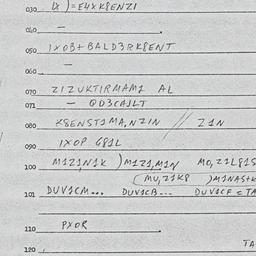 030 )=E4XK8ENZI
040 —
050 IX0B+BALD3RK8ENT
060 —
070 ZIZUKTIRMAM1 AL
071 — QD3CAJLT
080 K8ENST1MA,NZIN // Z1N
090 IXOP 681L
100 M1Z1N1K )M1Z1,M1N M0,Z1L81S
(MU,Z1K8 )M1NAS+K
101 DUV1CM... DUV1CB... DUV1CF = TA
110 PXOR
120 TA